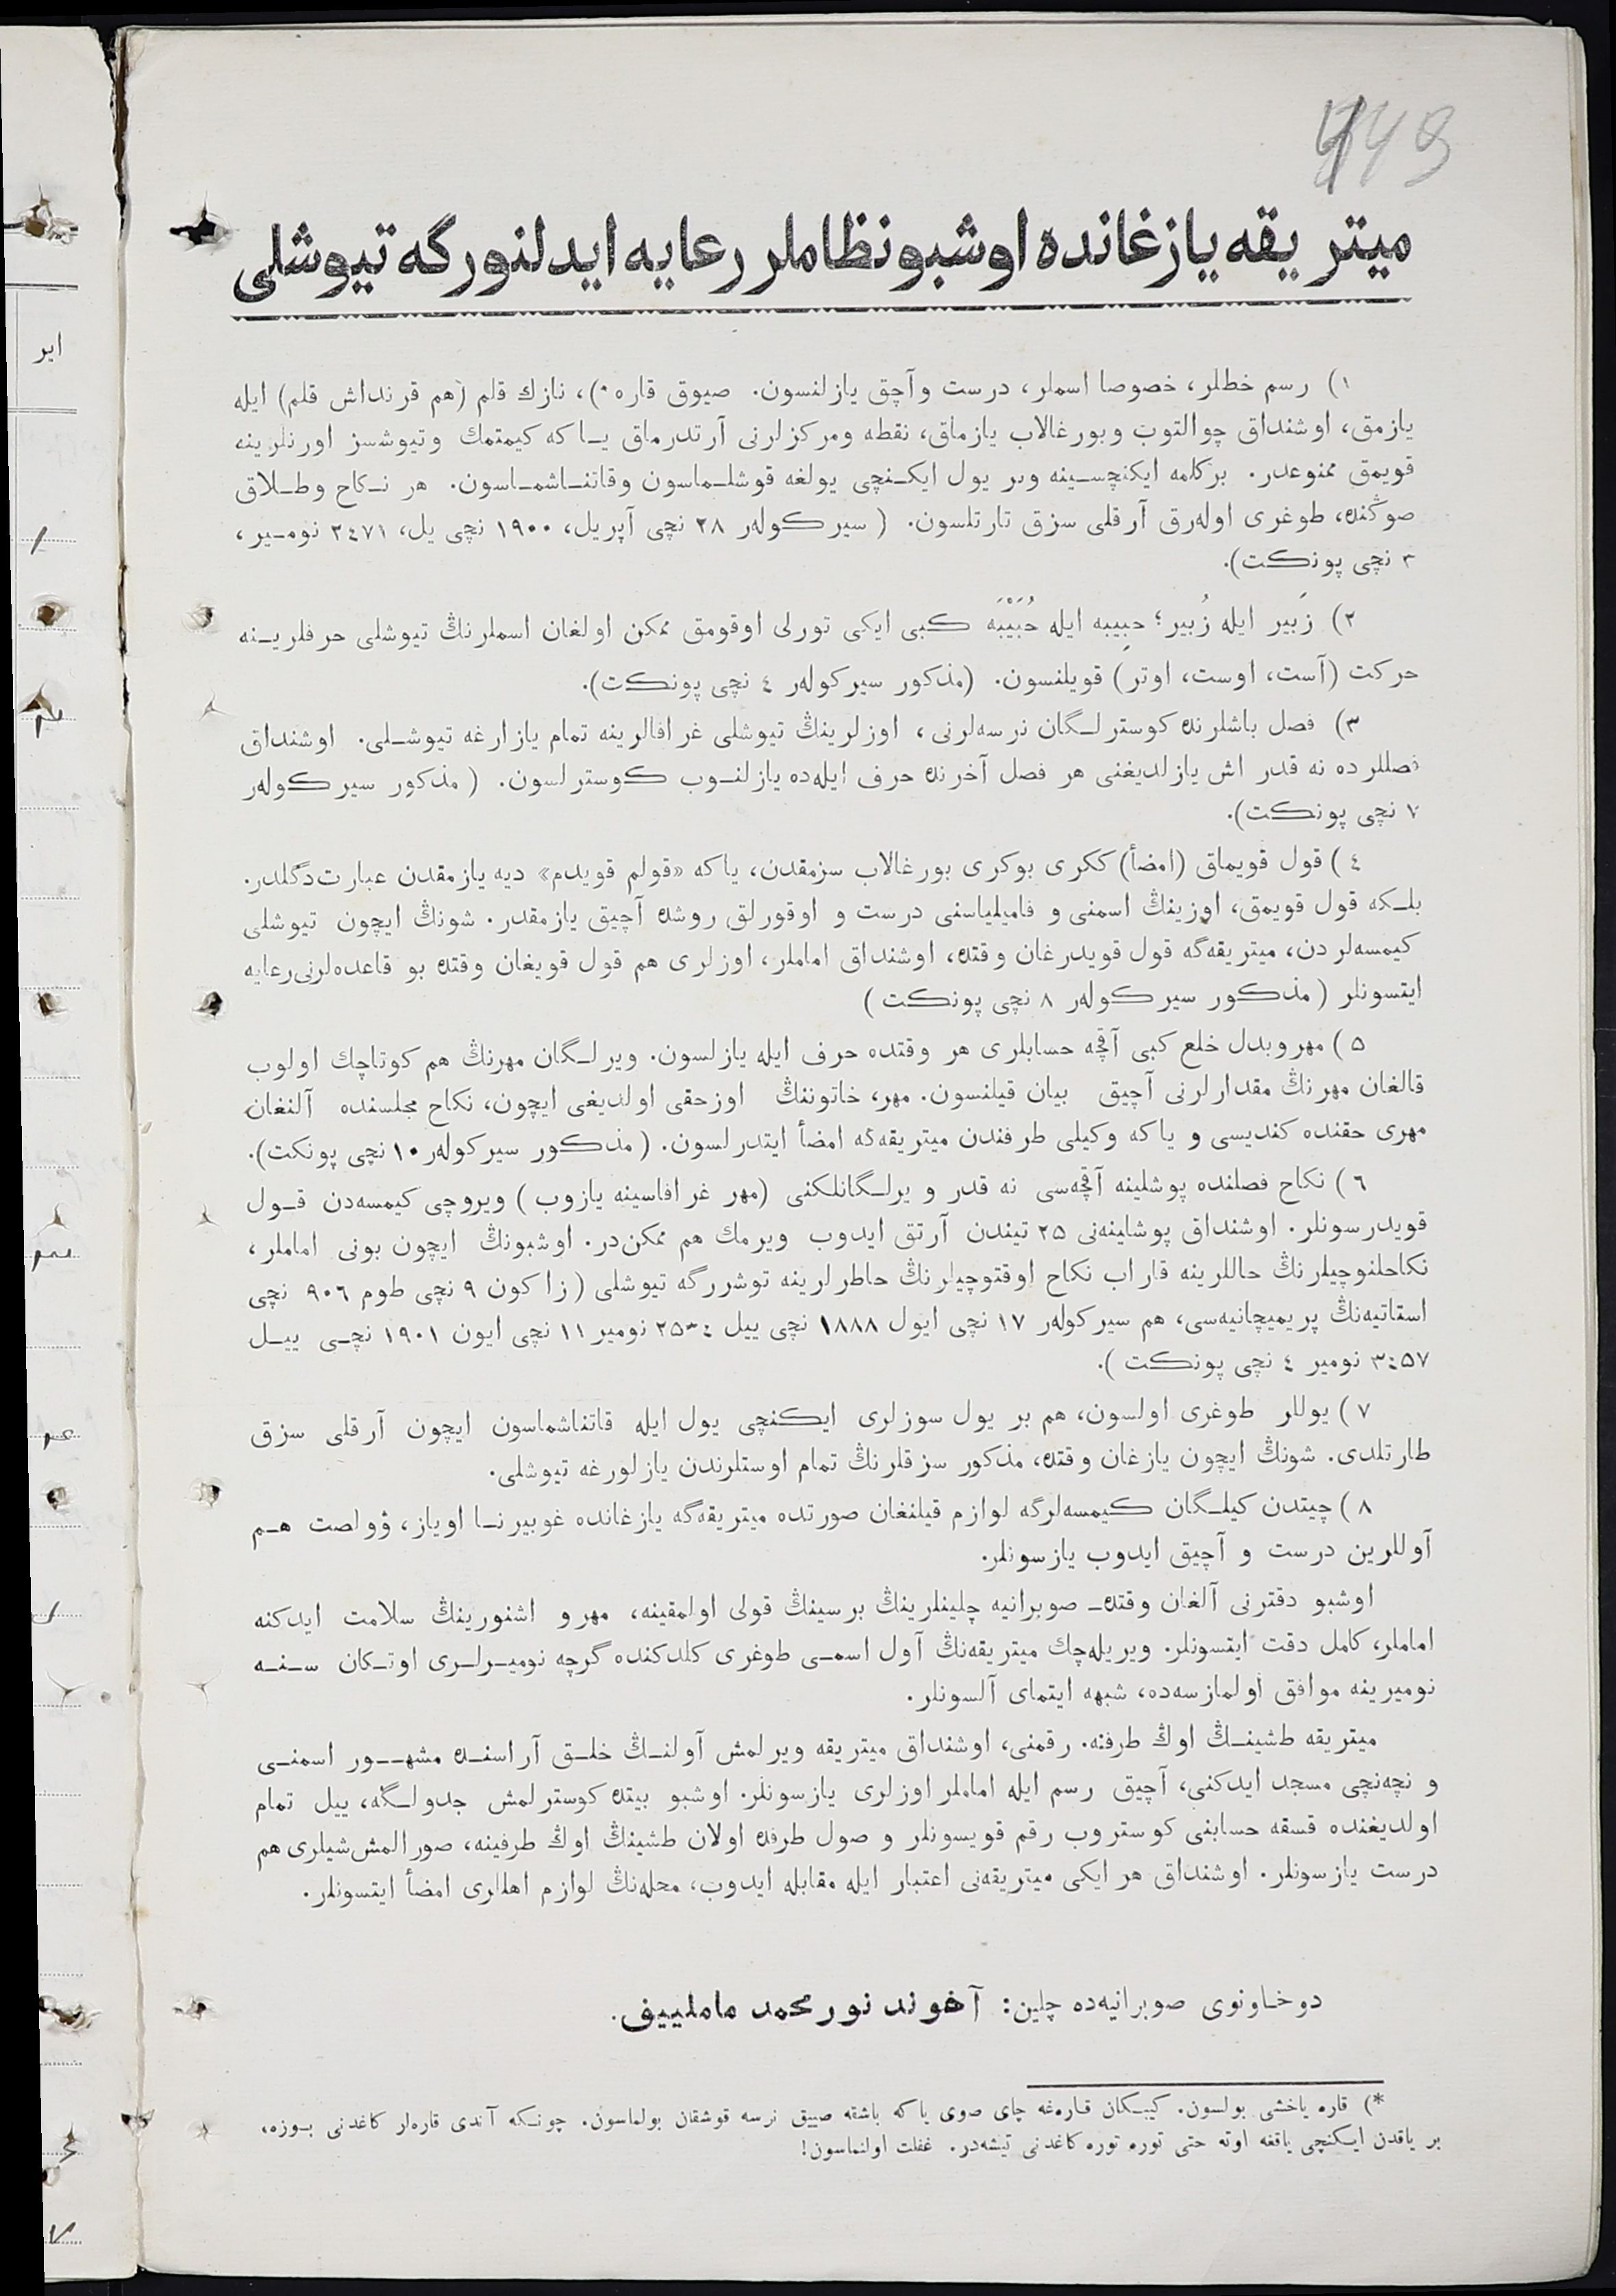 449
میتریقه یازغانده اوشبو نظاملر رعایه ایدلنورگه تیوشلی
١) رسم خطلر، خصوصا اسملر، درست وآچق یازلنسون. صیوق قاره *)، نازك قلم (هم قرنداش قلم) ایله
یازمق، اوشنداق چوالتوب وبورغالاب یازماق، نقطه ومركزلرنی آرتدرماق یـاكه كیمتمك وتیوشسز اورنلرینه
قویمق ممنوعدر. بركلمه ایكنچسـینه وبر یول ایكـنچی یولغه قوشلـماسون وقاتنـاشمـاسون. هر نـكاح وطـلاق
صوڭنده، طوغری اوله‌رق آرقلی سزق تارتلسون. (سیركوله‌ر ٢٨ نچی آپریل، ١٩٠٠ نچی یل، ٣٤٧١ نومـیر،
٣ نچی پونكت).
٢) زَبیر ایله زُبیر؛ حبِیبه ایله حُبَیْبَه كبی ایكی تورلی اوقومق ممكن اولغان اسملرنڭ تیوشلی حرفلریـنه
حركت (آست، اوست، اوتر) قویلنسون. (مذكور سیركوله‌ر ٤ نچی پونكت).
٣) فصل باشلرنده كوسترلـگان نرسه‌لرنی، اوزلرینڭ تیوشلی غرافالرینه تمام یازارغه تیوشـلی. اوشنداق
فصللرده نه قدر اش یازلدیغنی هر فصل آخرنده حرف ایله‌ده یازلنـوب كوسترلسون. (مذكور سیركوله‌ر
٧ نچی پونكت).
٤) قول قویماق (امضأ) ككری بوكری بورغالاب سزمقدن، یاكه «قولم قویدم» دیه یازمقدن عبارت‌دگلدر.
بلـكه قول قویمق، اوزینڭ اسمنی و فامیلیاسنی درست و اوقورلق روشده آچیق یازمقدر. شونڭ ایچون تیوشلی
كیمسه‌لردن، میتریقه‌گه قول قویدرغان وقتده، اوشنداق اماملر، اوزلری هم قول قویغان وقتده بو قاعده‌لرنی رعایه
ایتسونلر (مذكور سیركوله‌ر ٨ نچی پونكت)
٥) مهر وبدل خلع كبی آقچه حسابلری هر وقتده حرف ایله یازلسون. ویرلـگان مهرنڭ هم كوتاچك اولوب
قالغان مهرنڭ مقدارلرنی آچیق بیان قیلنسون. مهر، خاتوننڭ اوزحقی اولدیغی ایچون، نكاح مجلسنده آلنغان
مهری حقنده كندیسی و یاكه وكیلی طرفندن میتریقه‌گه امضأ ایتدرلسون. (مذكور سیركوله‌ر ١٠ نچی پونكت).
٦) نكاح فصلنده پوشلینه آقچه‌سی نه قدر و یرلـگانلكنی (مهر غرافاسینه یازوب) ویروچی كیمسه‌دن قـول
قویدرسونلر. اوشنداق پوشلینه‌نی ٢٥ تیندن آرتق ایدوب ویرمك هم ممكن‌در. اوشبونڭ ایچون بونی اماملر،
نكاحلنوچیلرنڭ حاللرینه قاراب نكاح اوقتوچیلرنڭ خاطرلرینه توشررگه تیوشلی (زاكون ٩ نچی طوم ٩٠٦ نچی
استاتیه‌نڭ پریمیچانیه‌سی، هم سیركوله‌ر ١٧ نچی ایول ١٨٨٨ نچی ییل ٢٥٣٤ نومیر ١١ نچی ایون ١٩٠١ نچـی ییـل
٣٤٥٧ نومیر ٤ نچی پونكت).
٧) یوللر طوغری اولسون، هم بر یول سوزلری ایكنچی یول ایله قاتناشماسون ایچون آرقلی سزق
طارتلدی. شونڭ ایچون یازغان وقتده، مذكور سزقلرنڭ تمام اوستلرندن یازلورغه تیوشلی.
٨) چیتدن كیلـگان كیمسه‌لرگه لوازم قیلنغان صورتده میتریقه‌گه یازغانده غوبیرنـا اویاز، ۋولصت هـم
آوللرین درست و آچیق ایدوب یازسونلر.
اوشبو دفترنی آلغان وقتده صوبرانیه چلینلرینڭ برسینڭ قولی اولمقینه، مهر و اشنورینڭ سلامت ایدكنه
اماملر، كامل دقت ایتسونلر. ویریله‌چك میتریقه‌نڭ آول اسمـی طوغری كلدكنده گرچه نومیـرلـری اوتـكان سـنـه
نومیرینه موافق اولمازسه‌ده، شبهه ایتمای آلسونلر.
میتریقه طشینـڭ اوڭ طرفنه. رقمنی، اوشنداق میتریقه ویرلمش آولنـڭ خلـق آراسنـده مشهـور اسمنـی
و نچه‌نچی مسجد ایدكنی، آچیق رسم ایله اماملر اوزلری یازسونلر. اوشبو بیتده كوسترلمش جدولـگه، ییل تمام
اولدیغنده قسقه حسابنی كوستروب رقم قویسونلر و صول طرفده اولان طشینڭ اوڭ طرفینه، صورالمش شیلری هم
درست یازسونلر. اوشنداق هر ایكی میتریقه‌نی اعتبار ایله مقابله ایدوب، محله‌نڭ لوازم اهللری امضأ ایتسونلر.
دوخاونوی صوبرانیه‌ده چلین: آخوند نورمحمد ماملییف.
*) قاره یاخشی بولسون. كیبـكان قاره‌غه چای صوی یاكه باشقه صییق نرسه قوشقان بولماسون. چونـكه آندی قاره‌لر كاغدنی بـوزه،
بر یاقدن ایـكنچی یاقغه اوته حتی توره توره كاغدنی تیشه‌در. غفلت اولنماسون!
ایر